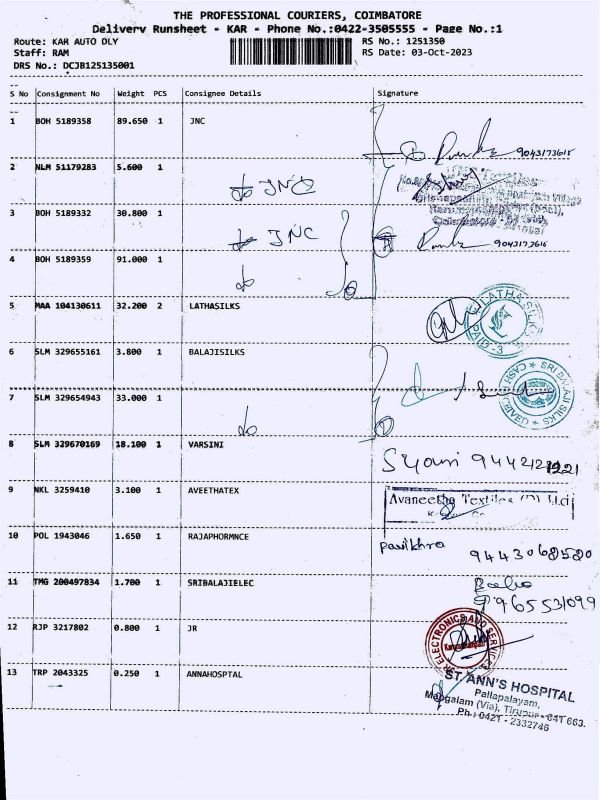 THE PROFESSIONAL COURIERS, COIMBATORE
Delivery Runsheet - KAR - Phone No.:0422-3505555 - Page No.:1
Route: KAR AUTO DLY RS No.: 1251350
Staff: RAM RS Date: 03-Oct-2023
DRS No.: DCJB125135001
S No Consignment No Weight PCS Consignee Details Signature
1 BOH 5189358 89.650 1 JNC
9043173615
2 NLM 51179283 5.600 1
JNC
3 BOH 5189332 30.800 1
JNC
4 BOH 5189359 91.000 1
5 MAA 104130611 32.200 2 LATHASILKS
LATHA SILKS
PAID-3
6 SLM 329655161 3.800 1 BALAJISILKS
7 SLM 329654943 33.000 1
SRI BALAJI SILKS
CASH RECEIVED
8 SLM 329670169 18.100 1 VARSINI
9 NKL 3259410 3.100 1 AVEETHATEX
Avaneetha Textiles (P) Ltd
10 POL 1943046 1.650 1 RAJAPHORMNCE
9443068580
11 TMG 200497834 1.700 1 SRIBALAJIELEC
9965531099
12 RJP 3217802 0.800 1 JR
JR ELECTRONICS AND SERVICES
13 TRP 2043325 0.250 1 ANNAHOSPTAL
ST ANN'S HOSPITAL
Pallapalayam,
Mangalam (Via), Tirupur - 641 663.
Ph : 0421 - 2332746